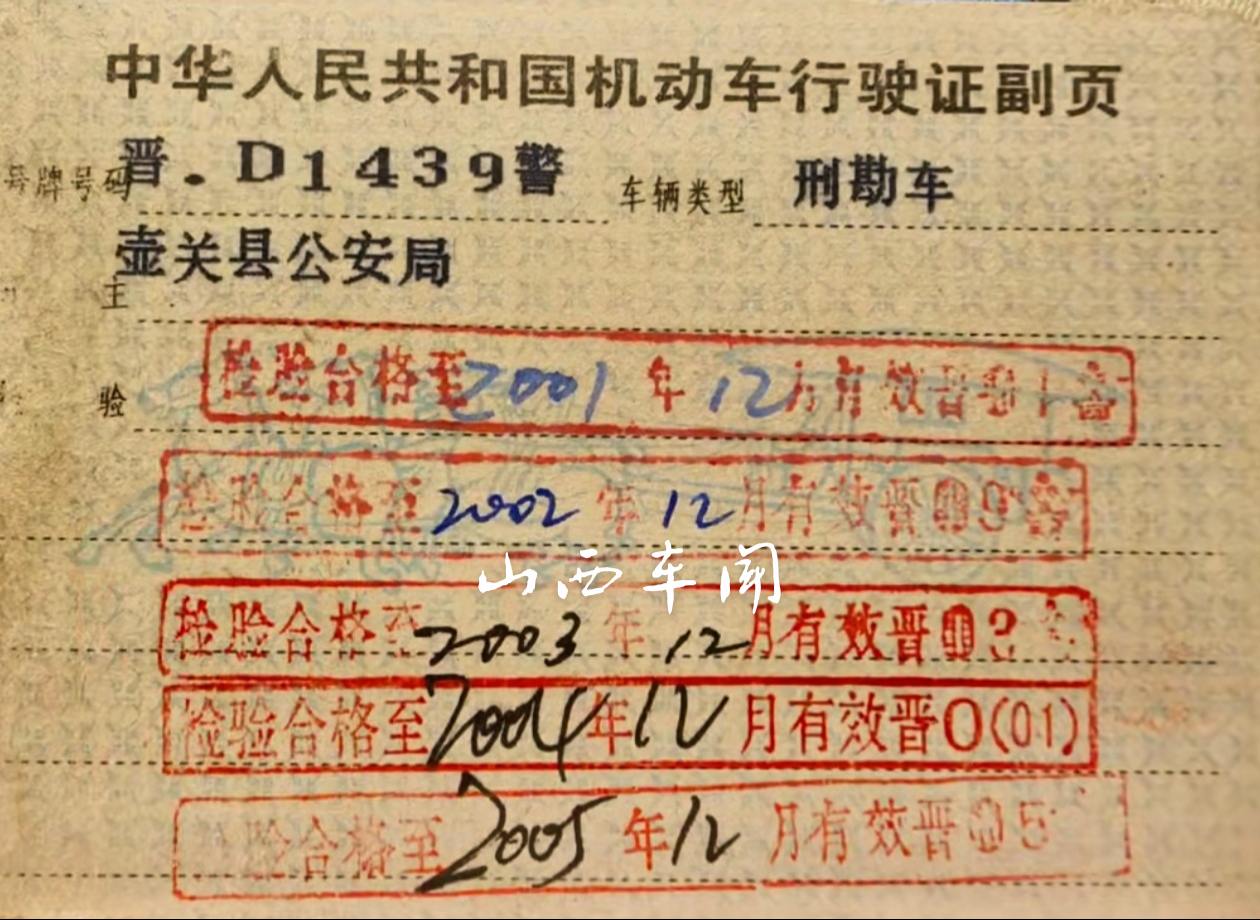 中华人民共和国机动车行驶证副页
号牌号码 晋.D1439警 车辆类型 刑勘车
壶关县公安局
主
验
检验合格至2001年12月有效晋
检验合格至2002年12月有效晋
山西车闻
检验合格至2003年12月有效晋
检验合格至2004年12月有效晋O(01)
检验合格至2005年12月有效晋